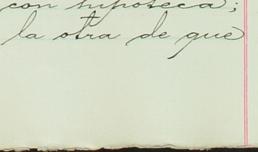 con hipoteca;
la otra de que